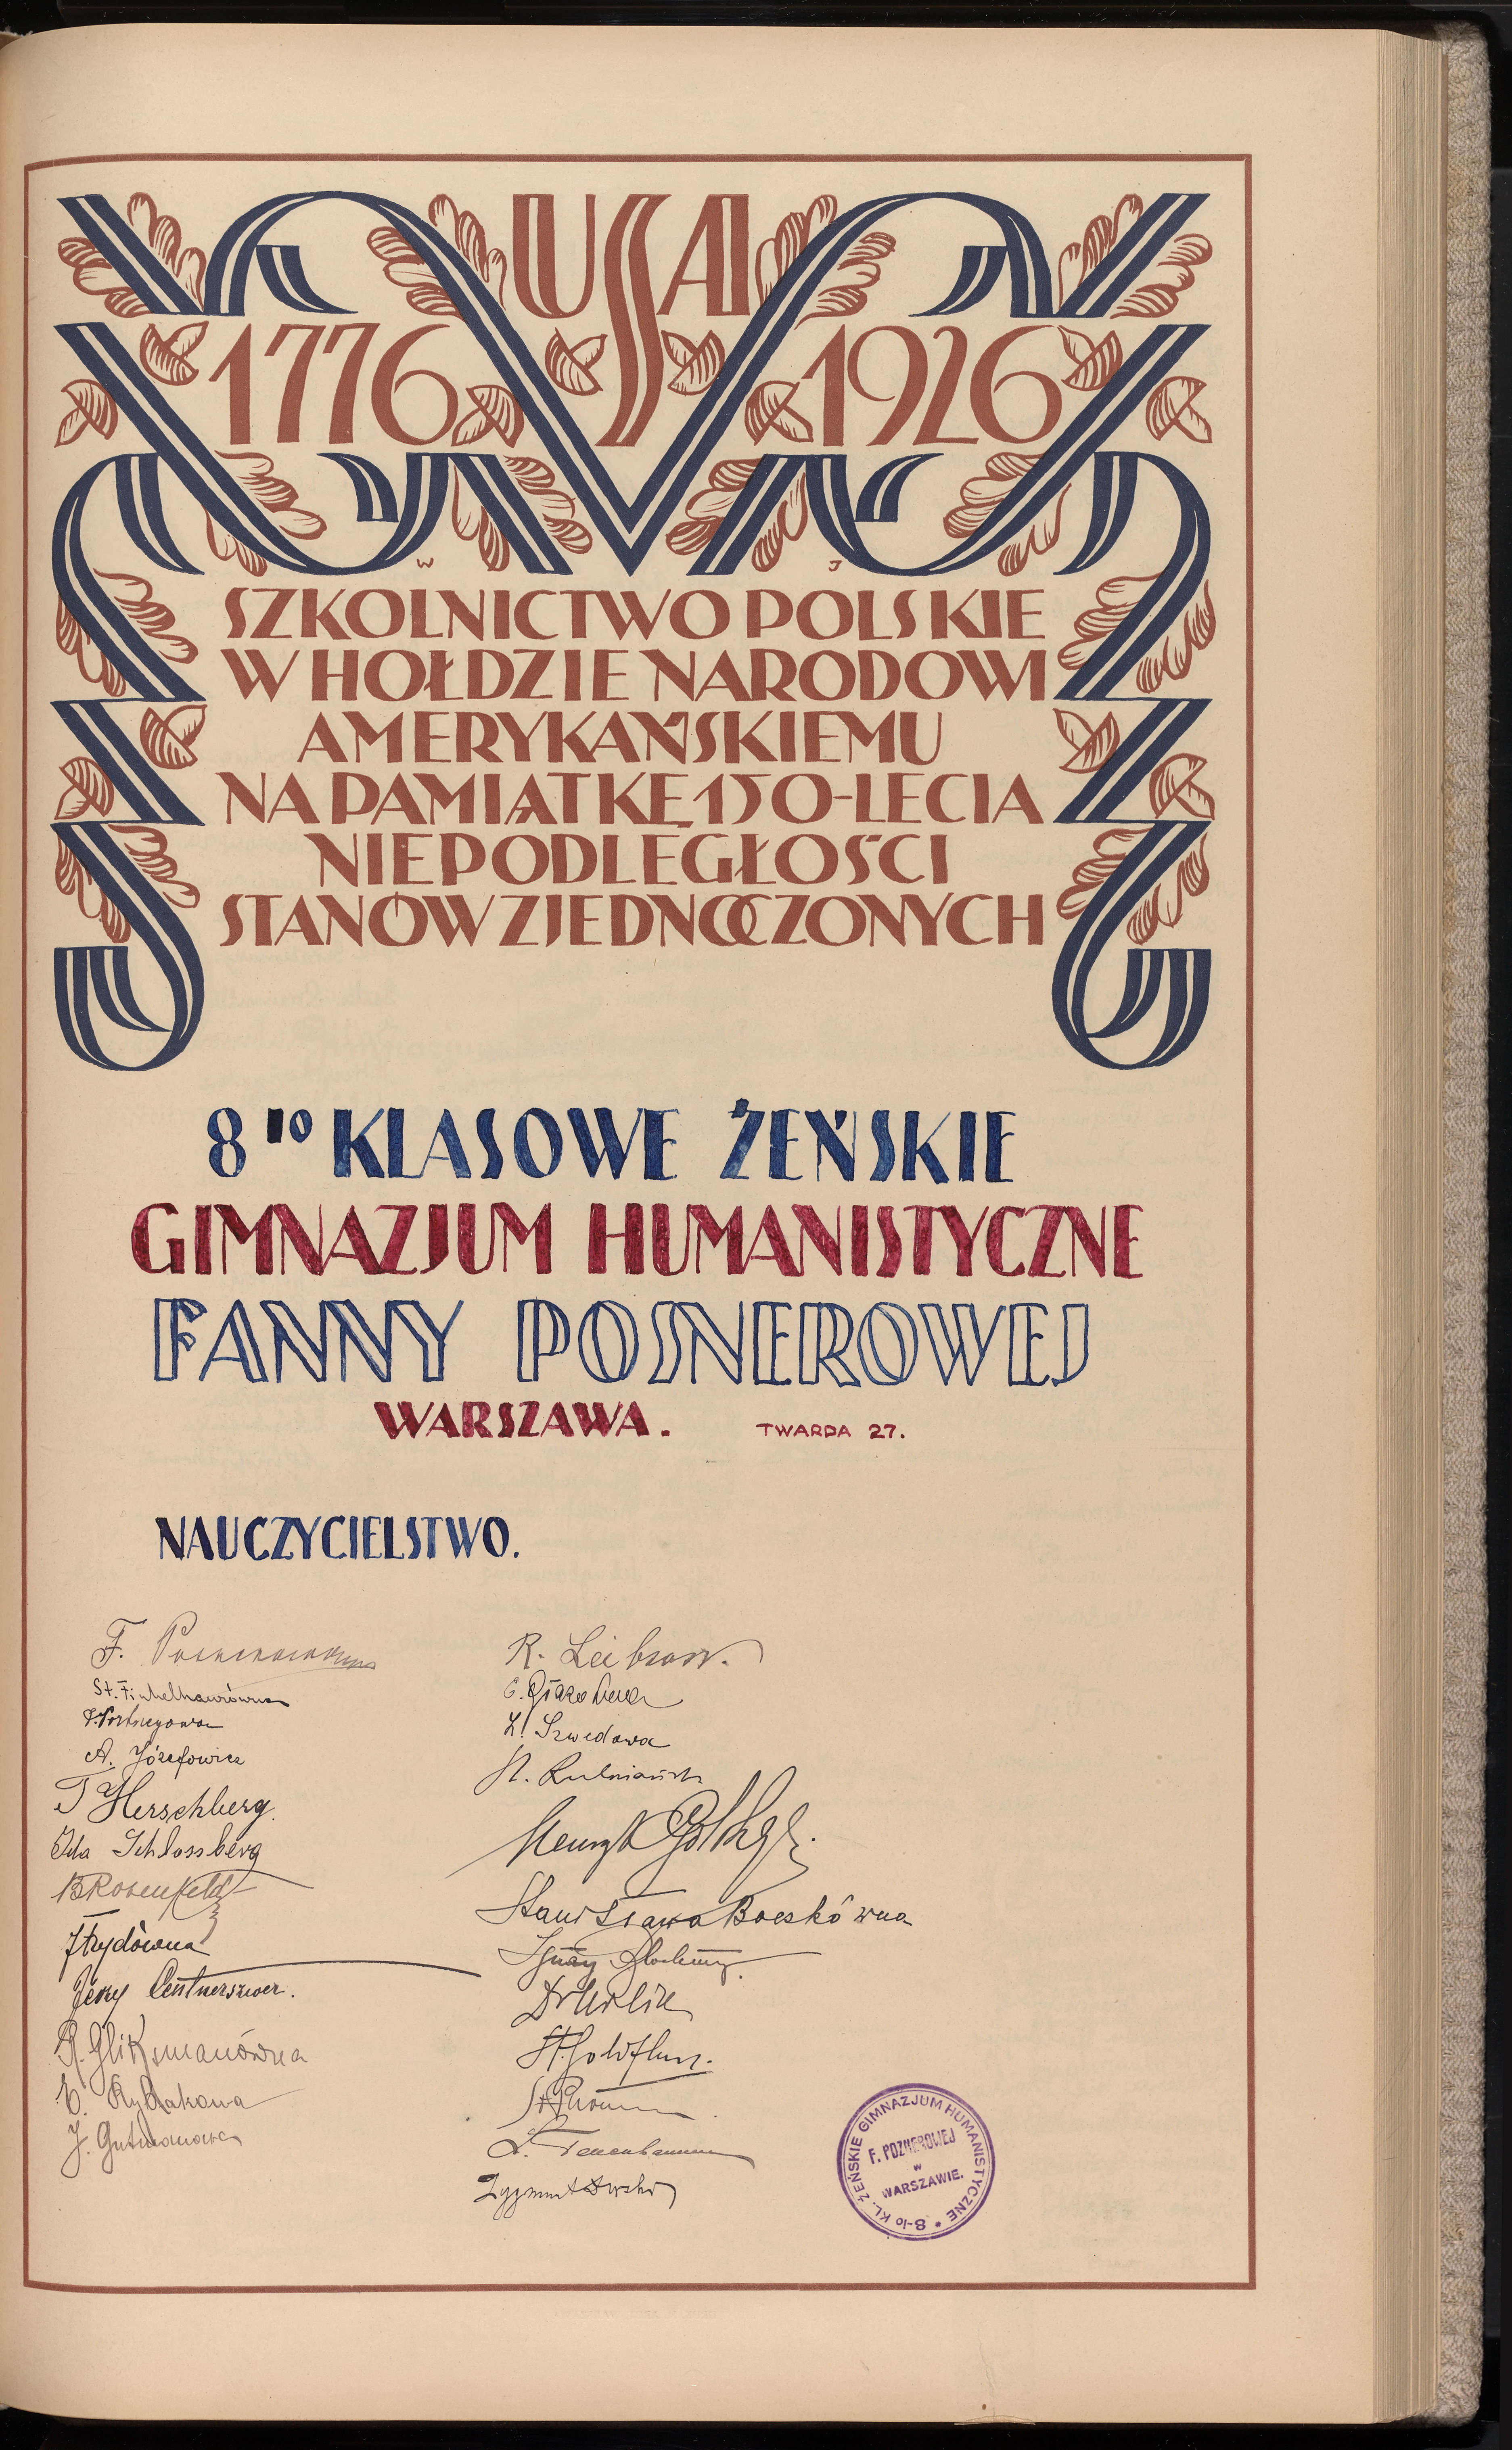 USA
1776 1926
W J
SZKOLNICTWO POLSKIE
W HOŁDZIE NARODOWI
AMERYKAŃSKIEMU
NA PAMIĄTKĘ 150-LECIA
NIEPODLEGŁOŚCI
STANÓW ZJEDNOCZONYCH
8 IO KLASOWE ŻEŃSKIE
GIMNAZJUM HUMANISTYCZNE
FANNY POSNEROWEJ
WARSZAWA. TWARDA 27.
NAUCZYCIELSTWO.
F.
St. Finkelhausówna
A. Józefowicz
T Herschberg.
Ida Schlossberg
B Rosenfeld
Frydówna
Jerzy Centnerszwer.
R. Gliksmanówna
E. Rybakowa
J. Gutmanowa
R.
Szwedowa
St.
Henryk
Stanisława Boczkówna
Ignacy
Dr
St.
L. Tenenbaum
Zygmunt
8-IO KL. ŻEŃSKIE GIMNAZJUM HUMANISTYCZNE
F. POZNEROWEJ
W
WARSZAWIE.